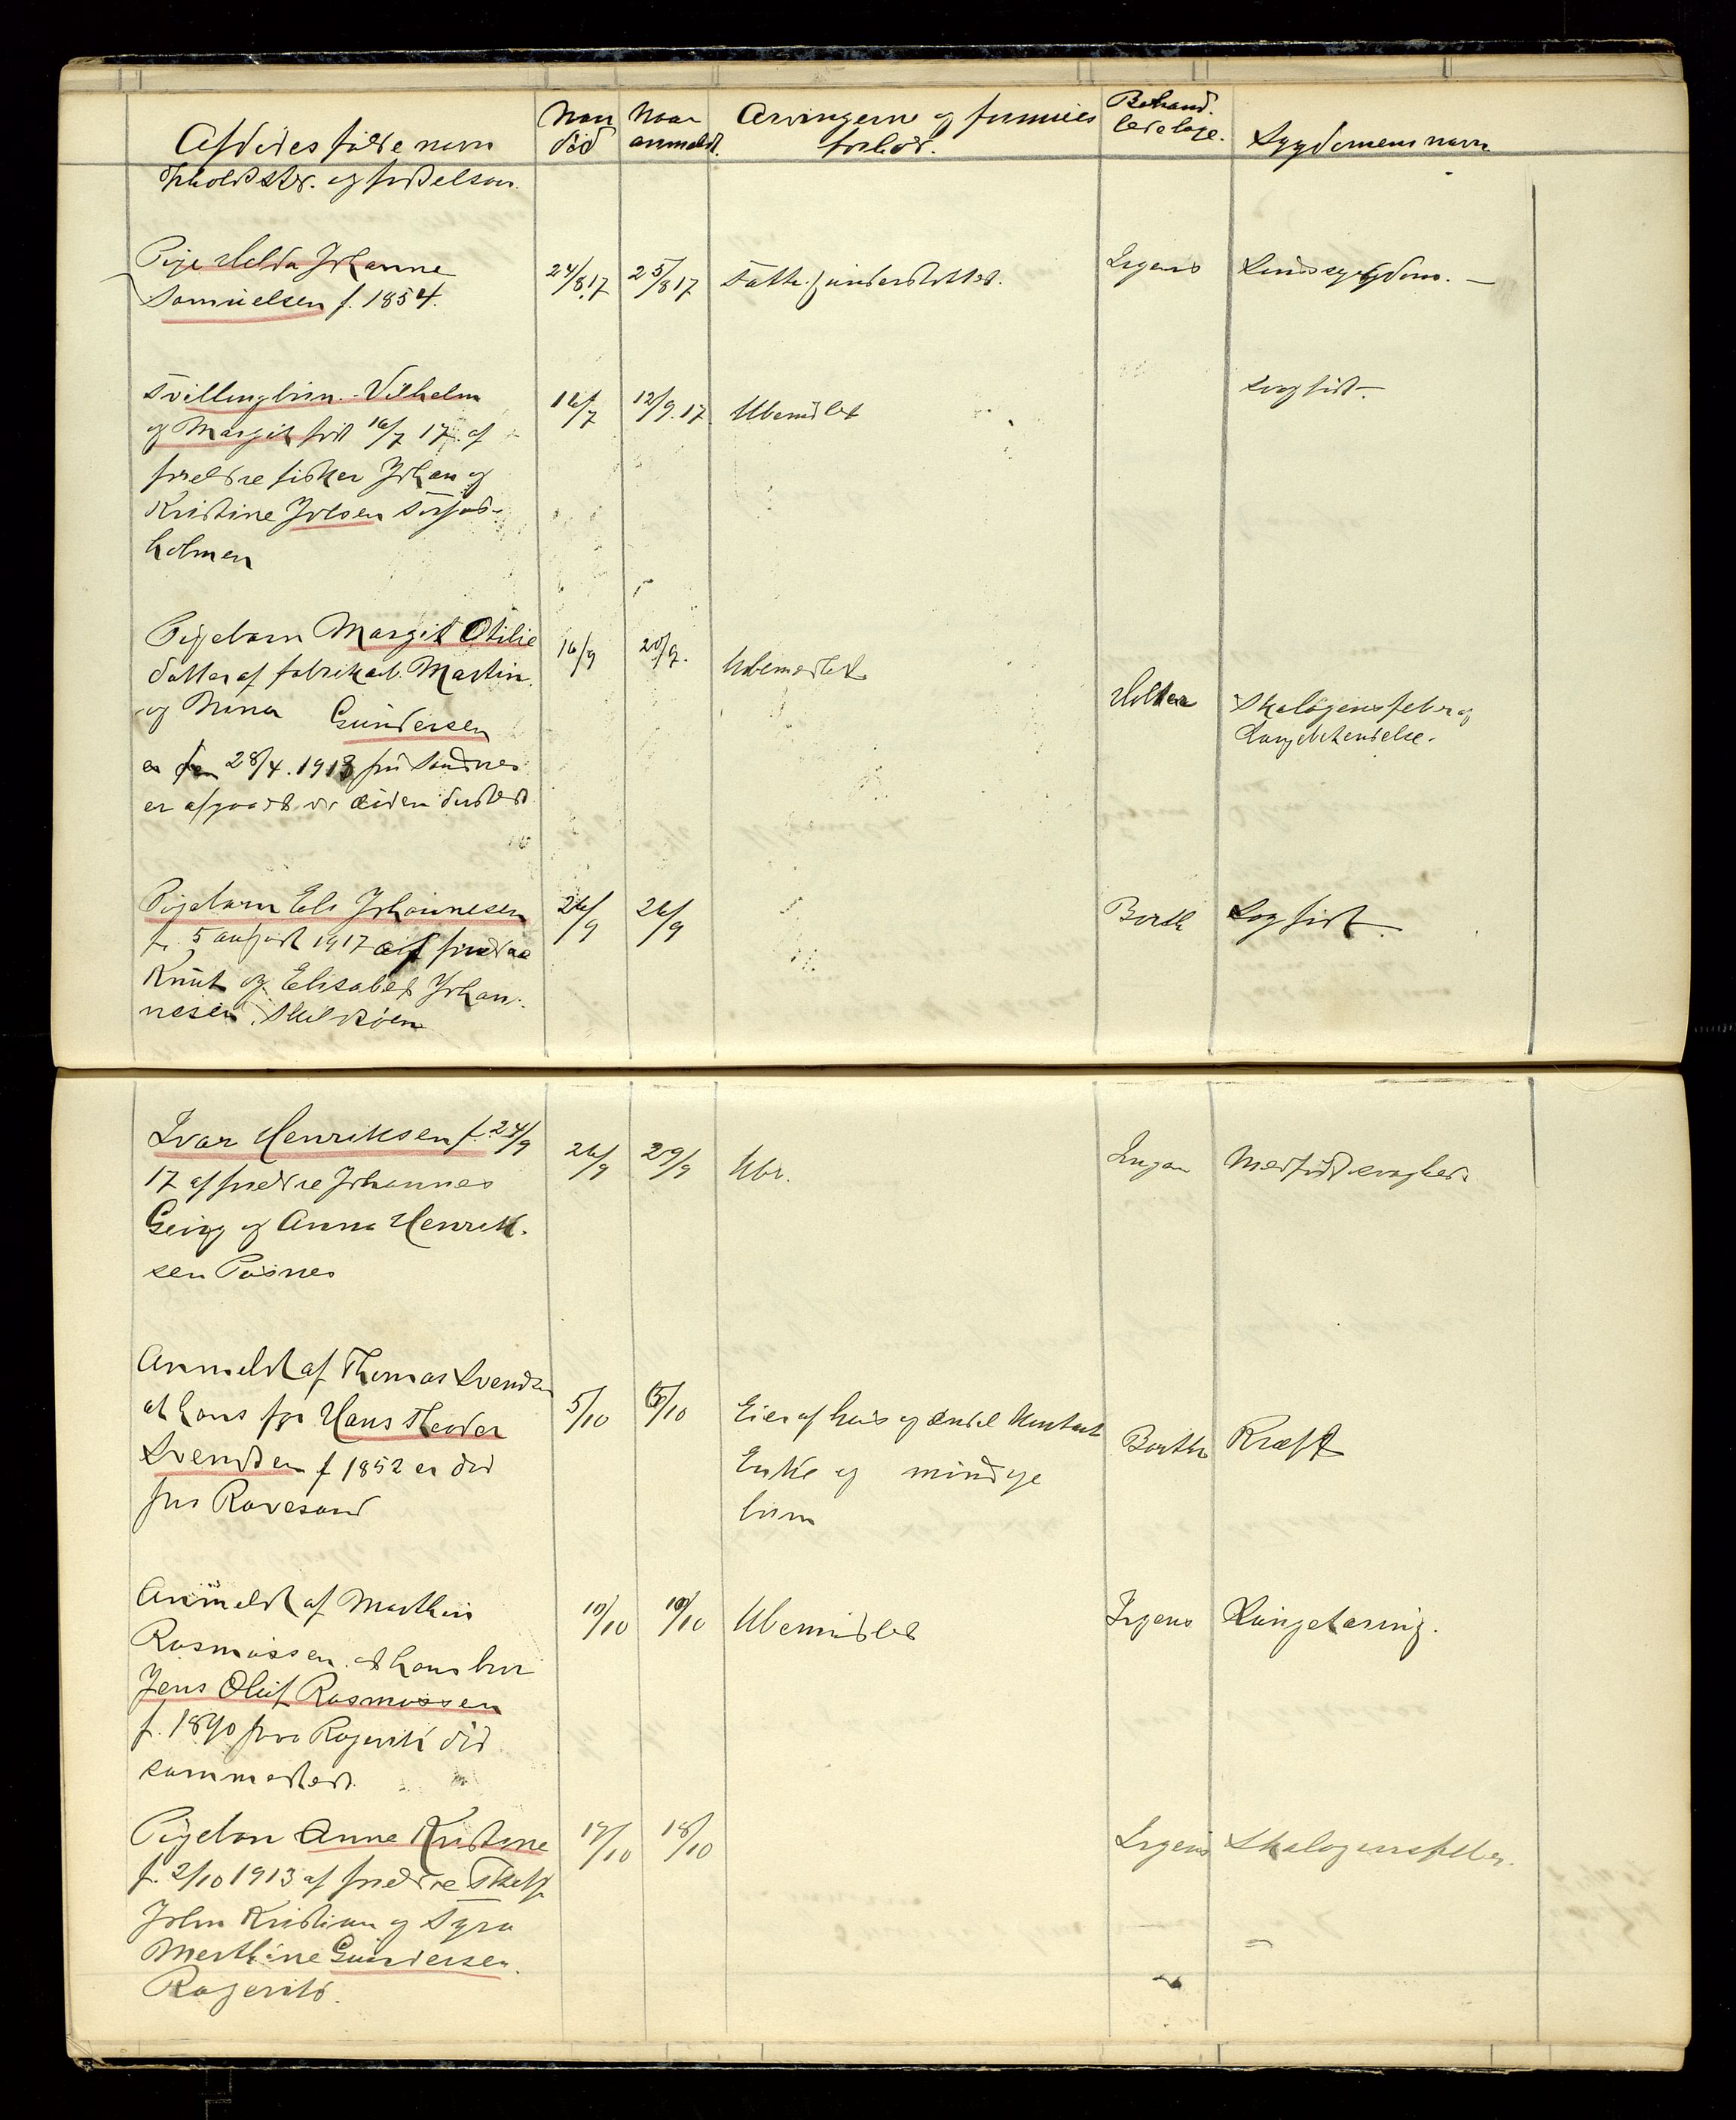 Afdødes fulde navn
opholdsted. og fødselsaar.
Naar
død
Naar
anmeldt.
Arvingerne og formues
forhold.
Behand.
lede læge.
Sygdommens navn
Pige Helda Johanne
Samuelsen f. 1854.
24/8 17
25/8 17
Fattig understøttet.
Irgens
Sindssygdom. —
Tvillingbørn. Vilhelm
og Margit født 16/7 17 af
forældre fisker Johan og
Kristine Jolsen
holmen
16/7
12/9. 17
Ubemidlet
svagfødt
Pigebarn Margit Otilie
datter af fabrikarb. Martin
og Nina Gundersen
28/4. 1913 fra Sandnes
er afgaaet ved døden
16/9
20/9.
Ubemidlet
Holter
Skalagensfeber og
Lungebetændelse.
Pigebarn Els Johannesen
f. 5 august 1917 af forældre
Knut og Elisabet Johan-
nesen.
26/9
26/9
Borth
Svagfødt
Ivar Henriksen f. 24/9
17 af forældre Johannes
Georg og Anna Henrik-
sen Pusnes
26/9
29/9
Ubr.
Irgens
Medfødt svaghed
Anmeldt af Thomas Svendsen
at hans far Hans Theodor
Svendsen f 1852 er død
fra Ravesand
5/10
6/10
Eier af hus og endel kontant
Enke og mindye
børn
Borth
Kræft
Anmeldt af Mathin
Rasmussen. at hans bror
Jens Oluf Rasmussen
f. 1890 fra Rægevik død
sammesteds.
10/10
10/10
Ubemidlet
Irgens
Lungetæring.
Pigebarn Anne Kristine
f. 2/10 1913 af forældre
John Kristian og Tyra
Merthine Gundersen.
Rægevik.
17/10
18/10
Irgens
Skalagensfeber.